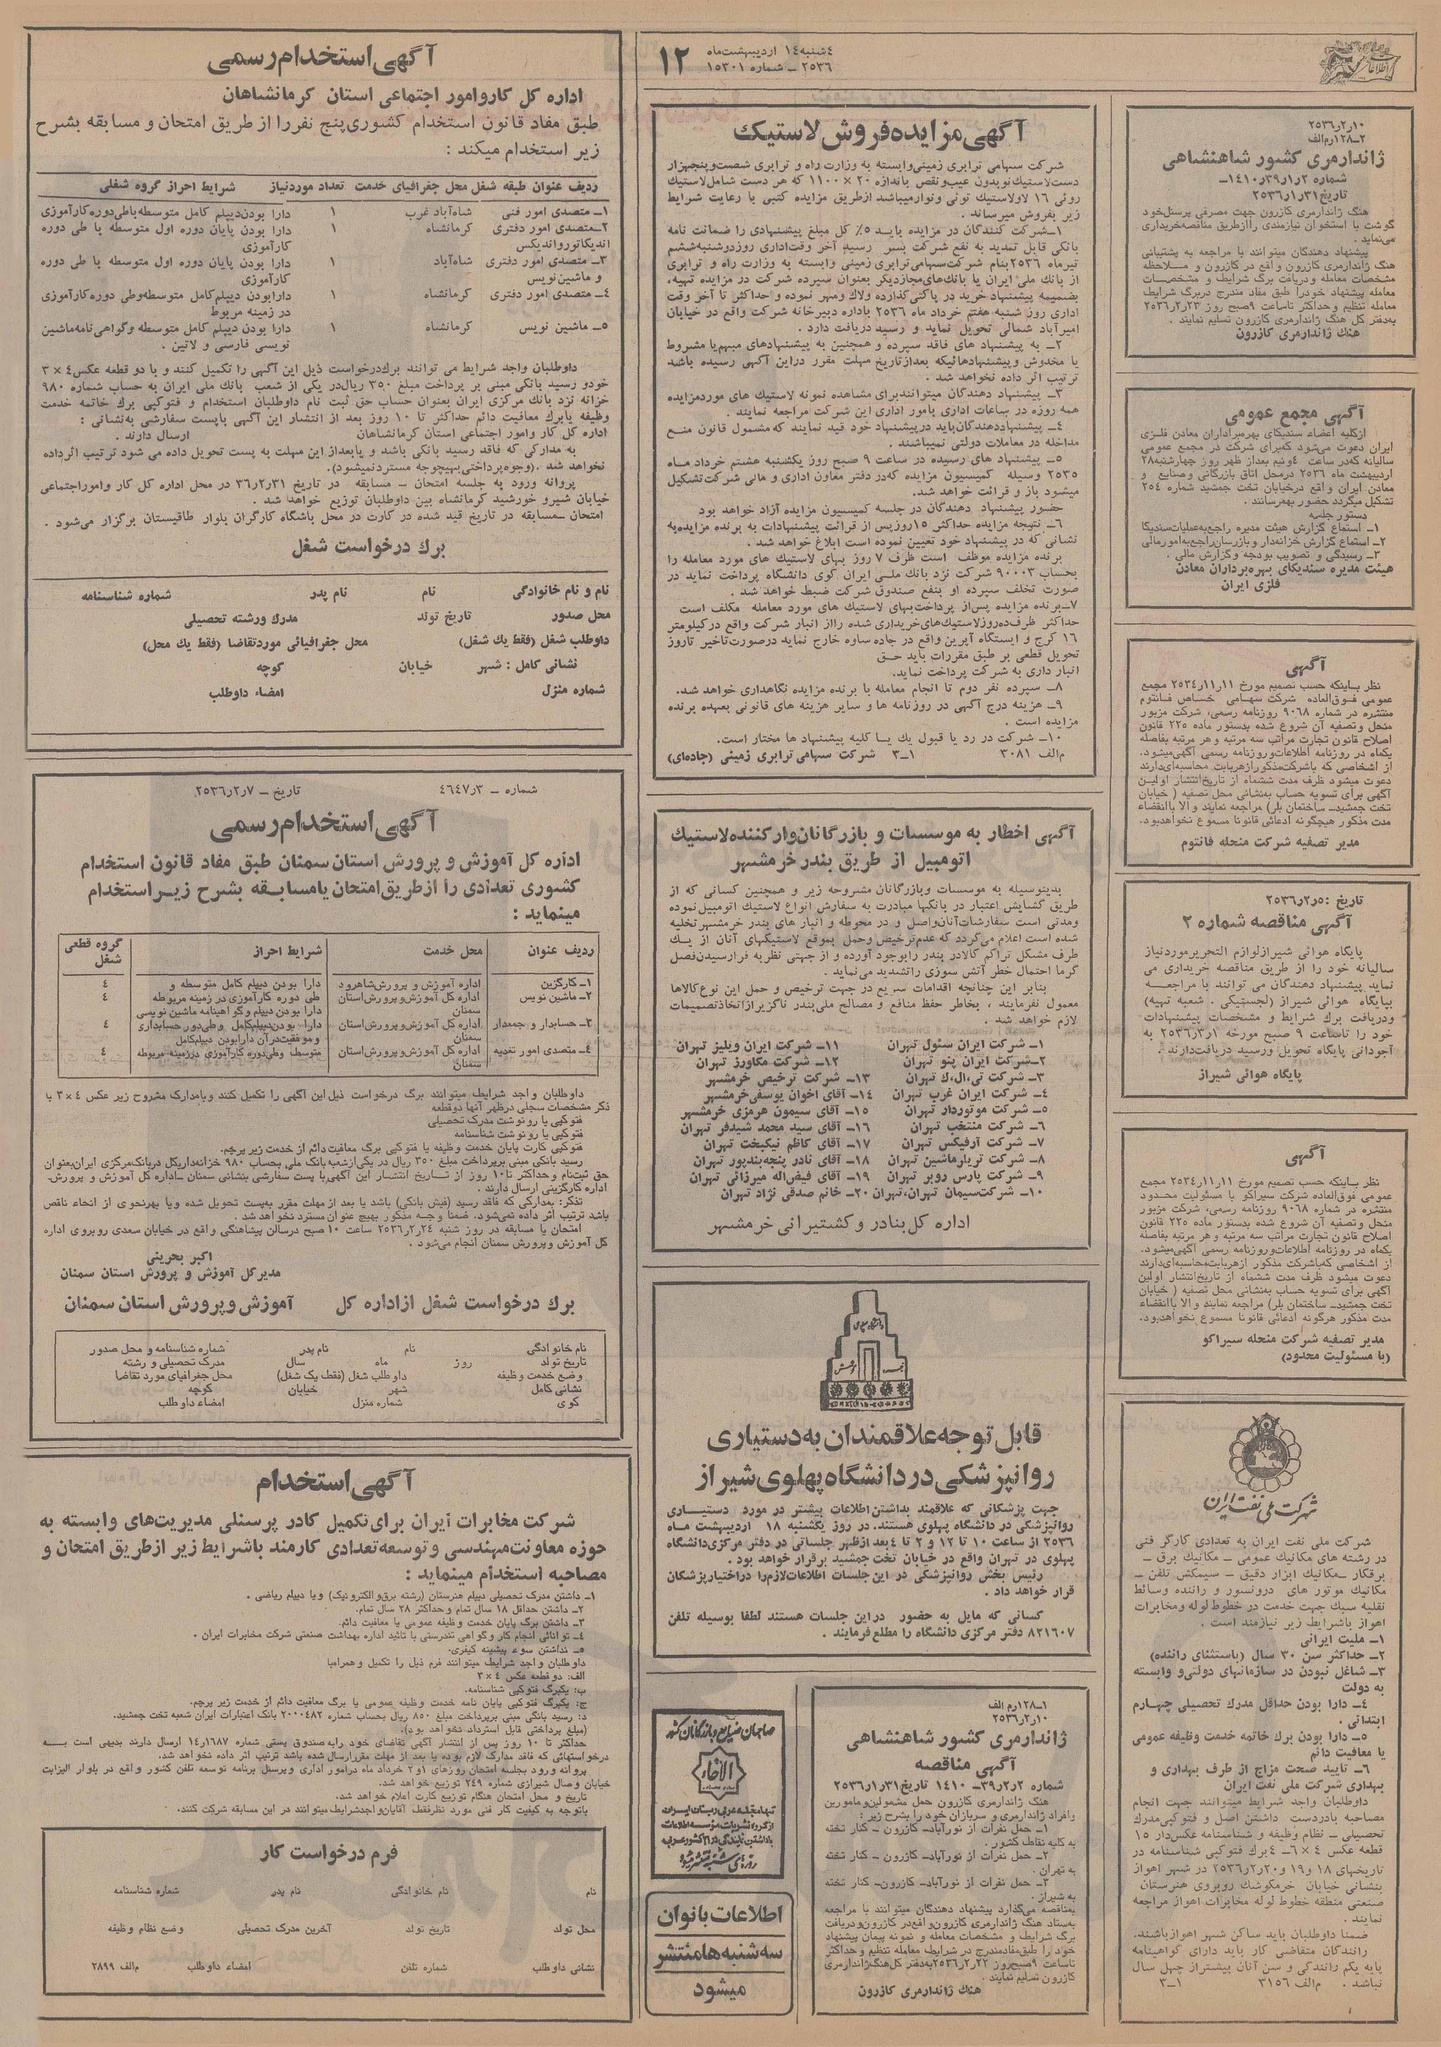 ۴شنبه ۱۴ اردیبهشت ماه
۲۵۳۶ – شماره ۱۵۳۰۱
۱۲
۱۰ر۲ر۲۵۳۶
۲–۱۲۸رم الف
ژاندارمری کشور شاهنشاهی
شماره ۲ر۱ر۳۹ر۱۴۱۰–
تاریخ ۳۱ر۱ر۲۵۳۶
هنگ ژاندارمری کازرون جهت مصرفی پرسنل خود
گوشت با استخوان نیازمندی را از طریق مناقصه خریداری
می نماید .
پیشنهاد دهندگان میتوانند با مراجعه به پشتیبانی
هنگ ژاندارمری کازرون واقع در کازرون و ملاحظه
مشخصات معامله و دریافت برگ شرایط و مشخصات
معامله پیشنهاد خود را طبق مفاد مندرج در برگ شرایط
معامله تنظیم و حداکثر تا ساعت ۹ صبح روز ۲۳ر۲ر۲۵۳۶
به دفتر کل هنگ ژاندارمری کازرون تسلیم نمایند .
هنگ ژاندارمری کازرون
آگهی مجمع عمومی
از کلیه اعضاء سندیکای بهره برداران معادن فلزی
ایران دعوت می شود که برای شرکت در مجمع عمومی
سالیانه که در ساعت ۴ و نیم بعد از ظهر روز چهارشنبه ۲۸
اردیبهشت ماه ۲۵۳۶ در محل اتاق بازرگانی و صنایع و
معادن ایران واقع در خیابان تخت جمشید شماره ۲۵۴
تشکیل میگردد حضور بهم رسانند .
دستور جلسه
۱– استماع گزارش هیئت مدیره راجع به عملیات سندیکا
۲– استماع گزارش خزانه دار و بازرسان راجع به امور مالی
۳– رسیدگی و تصویب بودجه و گزارش مالی .
هیئت مدیره سندیکای بهره برداران معادن
فلزی ایران
آگهی
نظر باینکه حسب تصمیم مورخ ۱۱ر۱۱ر۲۵۳۴ مجمع
عمومی فوق العاده شرکت سهامی خاص فانتوم
منتشره در شماره ۹۰۶۸ روزنامه رسمی، شرکت مزبور
منحل و تصفیه آن شروع شده بدستور ماده ۲۲۵ قانون
اصلاح قانون تجارت مراتب سه مرتبه و هر مرتبه بفاصله
یکماه در روزنامه اطلاعات و روزنامه رسمی آگهی میشود.
از اشخاصی که با شرکت مذکور از هر بابت محاسبه ای دارند
دعوت میشود ظرف مدت ششماه از تاریخ انتشار اولین
آگهی برای تسویه حساب به نشانی محل تصفیه ( خیابان
تخت جمشید– ساختمان بلر) مراجعه نمایند و الا با انقضاء
مدت مذکور هیچگونه ادعائی قانونا مسموع نخواهد بود.
مدیر تصفیه شرکت منحله فانتوم
تاریخ : ۵ر۲ر۲۵۳۶
آگهی مناقصه شماره ۲
پایگاه هوائی شیراز لوازم التحریر مورد نیاز
سالیانه خود را از طریق مناقصه خریداری می
نماید پیشنهاد دهندگان می توانند با مراجعه
بپایگاه هوائی شیراز (لجستیکی . شعبه تهیه)
و دریافت برگ شرایط و مشخصات پیشنهادات
خود را تا ساعت ۹ صبح مورخه ۱ر۳ر۲۵۳۶ به
آجودانی پایگاه تحویل و رسید دریافت دارند .
پایگاه هوائی شیراز
آگهی
نظر باینکه حسب تصمیم مورخ ۱۱ر۱۱ر۲۵۳۴ مجمع
عمومی فوق العاده شرکت سیراکو با مسئولیت محدود
منتشره در شماره ۹۰۶۸ روزنامه رسمی، شرکت مزبور
منحل و تصفیه آن شروع شده بدستور ماده ۲۲۵ قانون
اصلاح قانون تجارت مراتب سه مرتبه و هر مرتبه بفاصله
یکماه در روزنامه اطلاعات و روزنامه رسمی آگهی میشود.
از اشخاصی که با شرکت مذکور از هر بابت محاسبه ای دارند
دعوت میشود ظرف مدت ششماه از تاریخ انتشار اولین
آگهی برای تسویه حساب به نشانی محل تصفیه ( خیابان
تخت جمشید– ساختمان بلر) مراجعه نمایند و الا با انقضاء
مدت مذکور هرگونه ادعائی قانونا مسموع نخواهد بود.
مدیر تصفیه شرکت منحله سیراکو
(با مسئولیت محدود)
شرکت ملی نفت ایران
شرکت ملی نفت ایران به تعدادی کارگر فنی
در رشته های مکانیک عمومی – مکانیک برق –
برقکار – مکانیک ابزار دقیق – سیمکش تلفن –
مکانیک موتور های درونسوز و راننده وسائط
نقلیه سبک جهت خدمت در خطوط لوله و مخابرات
اهواز با شرایط زیر نیازمند است .
۱– ملیت ایرانی
۲– حداکثر سن ۳۰ سال (باستثنای راننده)
۳– شاغل نبودن در سازمانهای دولتی و وابسته
به دولت
۴– دارا بودن حداقل مدرک تحصیلی چهارم
ابتدائی .
۵– دارا بودن برگ خاتمه خدمت وظیفه عمومی
یا معافیت دائم
۶– تایید صحت مزاج از طرف بهداری و
بهداری شرکت ملی نفت ایران
داوطلبان واجد شرایط میتوانند جهت انجام
مصاحبه با در دست داشتن اصل و فتوکپی مدرک
تحصیلی – نظام وظیفه و شناسنامه عکس دار ۱۵
قطعه عکس ۴ × ۶– ۴ برگ فتوکپی شناسنامه در
تاریخهای ۱۸ و ۱۹ و ۲۰ر۲ر۲۵۳۶ در شهر اهواز
بنشانی خیابان خرمکوشک روبروی هنرستان
صنعتی منطقه خطوط لوله مخابرات اهواز مراجعه
نمایند .
ضمنا داوطلبان باید ساکن شهر اهواز باشند.
رانندگان متقاضی کار باید دارای گواهینامه
پایه یکم رانندگی و سن آنان بیشتر از چهل سال
نباشد . م الف ۳۱۵۶ ۱–۳
آگهی مزایده فروش لاستیک
شرکت سهامی ترابری زمینی وابسته به وزارت راه و ترابری شصت و پنجهزار
دست لاستیک نو بدون عیب و نقص باندازه ۲۰ × ۱۱۰۰ که هر دست شامل لاستیک
روئی ۱۶ لا و لاستیک توئی و نوار میباشد از طریق مزایده کتبی با رعایت شرایط
زیر بفروش میرساند .
۱– شرکت کنندگان در مزایده باید ۵٪ کل مبلغ پیشنهادی را ضمانت نامه
بانکی قابل تمدید به نفع شرکت بسر رسید آخر وقت اداری روز دوشنبه ششم
تیرماه ۲۵۳۶ بنام شرکت سهامی ترابری زمینی وابسته به وزارت راه و ترابری
از بانک ملی ایران یا بانک های مجاز دیگر بعنوان سپرده شرکت در مزایده تهیه،
بضمیمه پیشنهاد خرید در پاکتی گذارده و لاک و مهر نموده و حداکثر تا آخر وقت
اداری روز شنبه هفتم خرداد ماه ۲۵۳۶ باداره دبیرخانه شرکت واقع در خیابان
امیرآباد شمالی تحویل نماید و رسید دریافت دارد .
۲– به پیشنهاد های فاقد سپرده و همچنین به پیشنهادهای مبهم یا مشروط
یا مخدوش و پیشنهادهائیکه بعد از تاریخ مهلت مقرر در این آگهی رسیده باشد
ترتیب اثر داده نخواهد شد .
۳– پیشنهاد دهندگان میتوانند برای مشاهده نمونه لاستیک های مورد مزایده
همه روزه در ساعات اداری بامور اداری این شرکت مراجعه نمایند .
۴– پیشنهاد دهندگان باید در پیشنهاد خود قید نمایند که مشمول قانون منع
مداخله در معاملات دولتی نمیباشند .
۵– پیشنهاد های رسیده در ساعت ۹ صبح روز یکشنبه هشتم خرداد ماه
۲۵۳۵ وسیله کمیسیون مزایده که در دفتر معاون اداری و مالی شرکت تشکیل
میشود باز و قرائت خواهد شد.
حضور پیشنهاد دهندگان در جلسه کمیسیون مزایده آزاد خواهد بود
۶– نتیجه مزایده حداکثر ۱۵ روز پس از قرائت پیشنهادات به برنده مزایده به
نشانی که در پیشنهاد خود تعیین نموده است ابلاغ خواهد شد .
برنده مزایده موظف است ظرف ۷ روز بهای لاستیک های مورد معامله را
بحساب ۹۰۰۰۳ شرکت نزد بانک ملی ایران کوی دانشگاه پرداخت نماید در
صورت تخلف سپرده او بنفع صندوق شرکت ضبط خواهد شد .
۷– برنده مزایده پس از پرداخت بهای لاستیک های مورد معامله مکلف است
حداکثر ظرف ده روز لاستیک های خریداری شده را از انبار شرکت واقع در کیلومتر
۱۶ کرج و ایستگاه آپرین واقع در جاده ساوه خارج نماید در صورت تاخیر تا روز
تحویل قطعی بر طبق مقررات باید حق
انبار داری به شرکت پرداخت نماید.
۸– سپرده نفر دوم تا انجام معامله با برنده مزایده نگاهداری خواهد شد.
۹– هزینه درج آگهی در روزنامه ها و سایر هزینه های قانونی بعهده برنده
مزایده است .
۱۰– شرکت در رد یا قبول یک یا کلیه پیشنهاد ها مختار است.
م الف ۳۰۸۱ ۱–۳ شرکت سهامی ترابری زمینی (جاده ای)
آگهی اخطار به موسسات و بازرگانان وارکننده لاستیک
اتومبیل از طریق بندر خرمشهر
بدینوسیله به موسسات و بازرگانان مشروحه زیر و همچنین کسانی که از
طریق گشایش اعتبار در بانکها مبادرت به سفارش انواع لاستیک اتومبیل نموده
و مدتی است سفارشات آنان واصل و در محوطه و انبار های بندر خرمشهر تخلیه
شده است اعلام می گردد که عدم ترخیص و حمل بموقع لاستیکهای آنان از یک
طرف مشکل تراکم کالا در بندر را بوجود آورده و از جهتی نظر به فرا رسیدن فصل
گرما احتمال خطر آتش سوزی را تشدید می نماید .
بنابر این چنانچه اقدامات سریع در جهت ترخیص و حمل این نوع کالاها
معمول نفرمایند ، بخاطر حفظ منافع و مصالح ملی بندر ناگزیر از اتخاذ تصمیمات
لازم خواهد شد .
۱– شرکت ایران سئول تهران
۲– شرکت ایران پنو تهران
۳– شرکت تی، ال، ک تهران
۴– شرکت ایران غرب تهران
۵– شرکت موتوردار تهران
۶– شرکت منتخب تهران
۷– شرکت آرفیکس تهران
۸– شرکت تریلر ماشین تهران
۹– شرکت پارس روبر تهران
۱۰– شرکت سیمان تهران، تهران
۱۱– شرکت ایران ویلیز تهران
۱۲– شرکت مکاورز تهران
۱۳– شرکت ترخیص خرمشهر
۱۴– آقای اخوان یوسفی خرمشهر
۱۵– آقای سیمون هرمزی خرمشهر
۱۶– آقای سید محمد شیدفر تهران
۱۷– آقای کاظم نیکبخت تهران
۱۸– آقای نادر پنجه بندپور تهران
۱۹– آقای فیض اله میرزائی تهران
۲۰– خانم صدقی نژاد تهران
اداره کل بنادر و کشتیرانی خرمشهر
قابل توجه علاقمندان به دستیاری
روانپزشکی در دانشگاه پهلوی شیراز
جهت پزشکانی که علاقمند بداشتن اطلاعات بیشتر در مورد دستیاری
روانپزشکی در دانشگاه پهلوی هستند، در روز یکشنبه ۱۸ اردیبهشت ماه
۲۵۳۶ از ساعت ۱۰ تا ۱۲ و ۲ تا ۴ بعد از ظهر جلساتی در دفتر مرکزی دانشگاه
پهلوی در تهران واقع در خیابان تخت جمشید برقرار خواهد بود .
رئیس بخش روانپزشکی در این جلسات اطلاعات لازم را در اختیار پزشکان
قرار خواهد داد .
کسانی که مایل به حضور در این جلسات هستند لطفا بوسیله تلفن
۸۲۱۶۰۷ دفتر مرکزی دانشگاه را مطلع فرمایند .
۱–۱۲۸رم الف
۱۰ر۲ر۲۵۳۶
ژاندارمری کشور شاهنشاهی
آگهی مناقصه
شماره ۲ر۲ر۳۹– ۱۴۱۰ تاریخ ۳۱ر۱ر۲۵۳۶
هنگ ژاندارمری کازرون حمل مشمولین و مامورین
و افراد ژاندارمری و سربازان خود را بشرح زیر :
۱– حمل نفرات از نورآباد– کازرون – کنار تخته
به کلیه نقاط کشور .
۲– حمل نفرات از نورآباد– کازرون – کنار تخته
به تهران .
۳– حمل نفرات از نورآباد– کازرون– کنار تخته
به شیراز .
بمناقصه می گذارد پیشنهاد دهندگان میتوانند با مراجعه
بستاد هنگ ژاندارمری کازرون واقع در کازرون و دریافت
برگ شرایط و مشخصات معامله و نمونه پیمان پیشنهاد
خود را طبق مفاد مندرج در شرایط معامله تنظیم و حداکثر
تا ساعت ۹ صبح روز ۲۲ر۲ر۲۵۳۶ به دفتر کل هنگ ژاندارمری
کازرون تسلیم نمایند .
هنگ ژاندارمری کازرون
صاحبان صنایع و بازرگانان کشور
الاخاء
تنها مجله عربی زبان ایران
از گروه نشریات موسسه اطلاعات
با داشتن نمایندگی در ۲۱ کشور عربی،
روزهای شنبه منتشر میشود
اطلاعات بانوان
سه شنبه ها منتشر
میشود
آگهی استخدام رسمی
اداره کل کار و امور اجتماعی استان کرمانشاهان
طبق مفاد قانون استخدام کشوری پنج نفر را از طریق امتحان و مسابقه بشرح
زیر استخدام میکند :
ردیف عنوان طبقه شغل محل جغرافیای خدمت تعداد مورد نیاز شرایط احراز گروه شغلی
۱– متصدی امور فنی شاه آباد غرب ۱ دارا بودن دیپلم کامل متوسطه با طی دوره کارآموزی
۲– متصدی امور دفتری کرمانشاه ۱ دارا بودن پایان دوره اول متوسطه با طی دوره
اندیکاتور و اندیکس کارآموزی
۳– متصدی امور دفتری شاه آباد ۱ دارا بودن پایان دوره اول متوسطه با طی دوره
و ماشین نویس کارآموزی
۴– متصدی امور دفتری کرمانشاه ۱ دارا بودن دیپلم کامل متوسطه و طی دوره کارآموزی
در زمینه مربوط
۵– ماشین نویس کرمانشاه ۱ دارا بودن دیپلم کامل متوسطه و گواهی نامه ماشین
نویسی فارسی و لاتین .
داوطلبان واجد شرایط می توانند برگ درخواست ذیل این آگهی را تکمیل کنند و با دو قطعه عکس ۴ × ۳
خود و رسید بانکی مبنی بر پرداخت مبلغ ۳۵۰ ریال در یکی از شعب بانک ملی ایران به حساب شماره ۹۸۰
خزانه نزد بانک مرکزی ایران بعنوان حساب حق ثبت نام داوطلبان استخدام و فتوکپی برگ خاتمه خدمت
وظیفه یا برگ معافیت دائم حداکثر تا ۱۰ روز بعد از انتشار این آگهی با پست سفارشی به نشانی :
اداره کل کار و امور اجتماعی استان کرمانشاهان ارسال دارند .
به مدارکی که فاقد رسید بانکی باشد و یا بعد از این مهلت به پست تحویل داده می شود ترتیب اثر داده
نخواهد شد .(وجوه پرداختی بهیچوجه مسترد نمیشود).
پروانه ورود به جلسه امتحان – مسابقه در تاریخ ۳۱ر۲ر۳۶ در محل اداره کل کار و امور اجتماعی
خیابان شیر و خورشید کرمانشاه بین داوطلبان توزیع خواهد شد .
امتحان – مسابقه در تاریخ قید شده در کارت در محل باشگاه کارگران بلوار طاقبستان برگزار می شود .
برگ درخواست شغل
نام و نام خانوادگی نام نام پدر شماره شناسنامه
محل صدور تاریخ تولد مدرک و رشته تحصیلی
داوطلب شغل (فقط یک شغل) محل جغرافیائی مورد تقاضا (فقط یک محل)
نشانی کامل : شهر خیابان کوچه
شماره منزل امضاء داوطلب
شماره – ۳ر۴۶۴۷ تاریخ – ۷ر۲ر۲۵۳۶
آگهی استخدام رسمی
اداره کل آموزش و پرورش استان سمنان طبق مفاد قانون استخدام
کشوری تعدادی را از طریق امتحان یا مسابقه بشرح زیر استخدام
مینماید :
ردیف عنوان محل خدمت شرایط احراز گروه قطعی شغل
۱– کارگزین اداره آموزش و پرورش شاهرود دارا بودن دیپلم کامل متوسطه و ۴
۲– ماشین نویس اداره کل آموزش و پرورش استان طی دوره کارآموزی در زمینه مربوطه ۴
سمنان دارا بودن دیپلم و گواهینامه ماشین نویسی
۳– حسابدار و جمعدار اداره کل آموزش و پرورش استان دارا بودن دیپلم کامل و طی دوره حسابداری ۴
سمنان و موفقیت در آن دارا بودن دیپلم کامل
۴– متصدی امور تغذیه اداره کل آموزش و پرورش استان متوسط و طی دوره کارآموزی در زمینه مربوطه ۴
سمنان
داوطلبان واجد شرایط میتوانند برگ درخواست ذیل این آگهی را تکمیل کنند و با مدارک مشروح زیر عکس ۴ × ۳ با
ذکر مشخصات سجلی در ظهر آنها دو قطعه
فتوکپی یا رونوشت مدرک تحصیلی
فتوکپی یا رونوشت شناسنامه
فتوکپی کارت پایان خدمت وظیفه یا فتوکپی برگ معافیت دائم از خدمت زیر پرچم.
رسید بانکی مبنی بر پرداخت مبلغ ۳۵۰ ریال در یکی از شعبه بانک ملی بحساب ۹۸۰ خزانه داریکل در بانک مرکزی ایران بعنوان
حق ثبت نام و حداکثر تا ۱۰ روز از تاریخ انتشار این آگهی با پست سفارشی بنشانی سمنان – اداره کل آموزش و پرورش–
اداره کارگزینی ارسال دارند .
تذکر: بمدارکی که فاقد رسید (فیش بانکی) باشد یا بعد از مهلت مقرر به پست تحویل شده و یا بهر نحوی از انحاء ناقص
باشد ترتیب اثر داده نمی شود. ضمنا وجه مذکور بهیچ عنوان مسترد نخواهد شد .
امتحان یا مسابقه در روز شنبه ۲۴ر۲ر۲۵۳۶ ساعت ۱۰ صبح در سالن پیشاهنگی واقع در خیابان سعدی روبروی اداره
کل آموزش و پرورش سمنان انجام می شود .
اکبر بحرینی
مدیر کل آموزش و پرورش استان سمنان
برگ درخواست شغل از اداره کل آموزش و پرورش استان سمنان
نام خانوادگی نام نام پدر شماره شناسنامه و محل صدور
تاریخ تولد روز ماه سال مدرک تحصیلی و رشته
وضع خدمت وظیفه داوطلب شغل (فقط یک شغل) محل جغرافیای مورد تقاضا
نشانی کامل شهر خیابان کوچه
کوی شماره منزل امضاء داوطلب
آگهی استخدام
شرکت مخابرات ایران برای تکمیل کادر پرسنلی مدیریت های وابسته به
حوزه معاونت مهندسی و توسعه تعدادی کارمند با شرایط زیر از طریق امتحان و
مصاحبه استخدام مینماید :
۱– داشتن مدرک تحصیلی دیپلم هنرستان (رشته برق و الکترونیک) و یا دیپلم ریاضی .
۲– داشتن حداقل ۱۸ سال تمام و حداکثر ۲۸ سال تمام.
۳– داشتن برگ پایان خدمت وظیفه عمومی یا معافیت دائم.
۴– توانائی انجام کار و گواهی تندرستی با تائید اداره بهداشت صنعتی شرکت مخابرات ایران .
۵– نداشتن سوء پیشینه کیفری.
داوطلبان واجد شرایط میتوانند فرم ذیل را تکمیل و همراه با
الف: دو قطعه عکس ۴ × ۳
ب: یکبرگ فتوکپی شناسنامه.
ج: یکبرگ فتوکپی پایان نامه خدمت وظیفه عمومی یا برگ معافیت دائم از خدمت زیر پرچم.
د: رسید بانکی مبنی بر پرداخت مبلغ ۸۵۰ ریال بحساب شماره ۲۰۰۰۴۸۲ بانک اعتبارات ایران شعبه تخت جمشید.
(مبلغ پرداختی قابل استرداد نخواهد بود).
حداکثر تا ۱۰ روز پس از انتشار آگهی تقاضای خود را به صندوق پستی شماره ۱۶۸۷ر۱۴ ارسال دارند بدیهی است به
درخواستهائی که فاقد مدارک لازم بوده یا بعد از مهلت مقرر ارسال شده باشد ترتیب اثر داده نخواهد شد.
پروانه ورود بجلسه امتحان روزهای ۱ و ۲ خرداد ماه در امور اداری و پرسنل برنامه توسعه تلفن کشور واقع در بلوار الیزابت
خیابان وصال شیرازی شماره ۲۴۹ توزیع خواهد شد.
تاریخ و محل امتحان هنگام توزیع کارت اعلام خواهد شد.
با توجه به کیفیت کار فنی مورد نظر فقط آقایان واجد شرایط میتوانند در این مسابقه شرکت کنند.
فرم درخواست کار
نام نام خانوادگی نام پدر شماره شناسنامه
محل تولد تاریخ تولد آخرین مدرک تحصیلی وضع نظام وظیفه
نشانی داوطلب شماره تلفن امضاء داوطلب م الف ۲۸۹۹